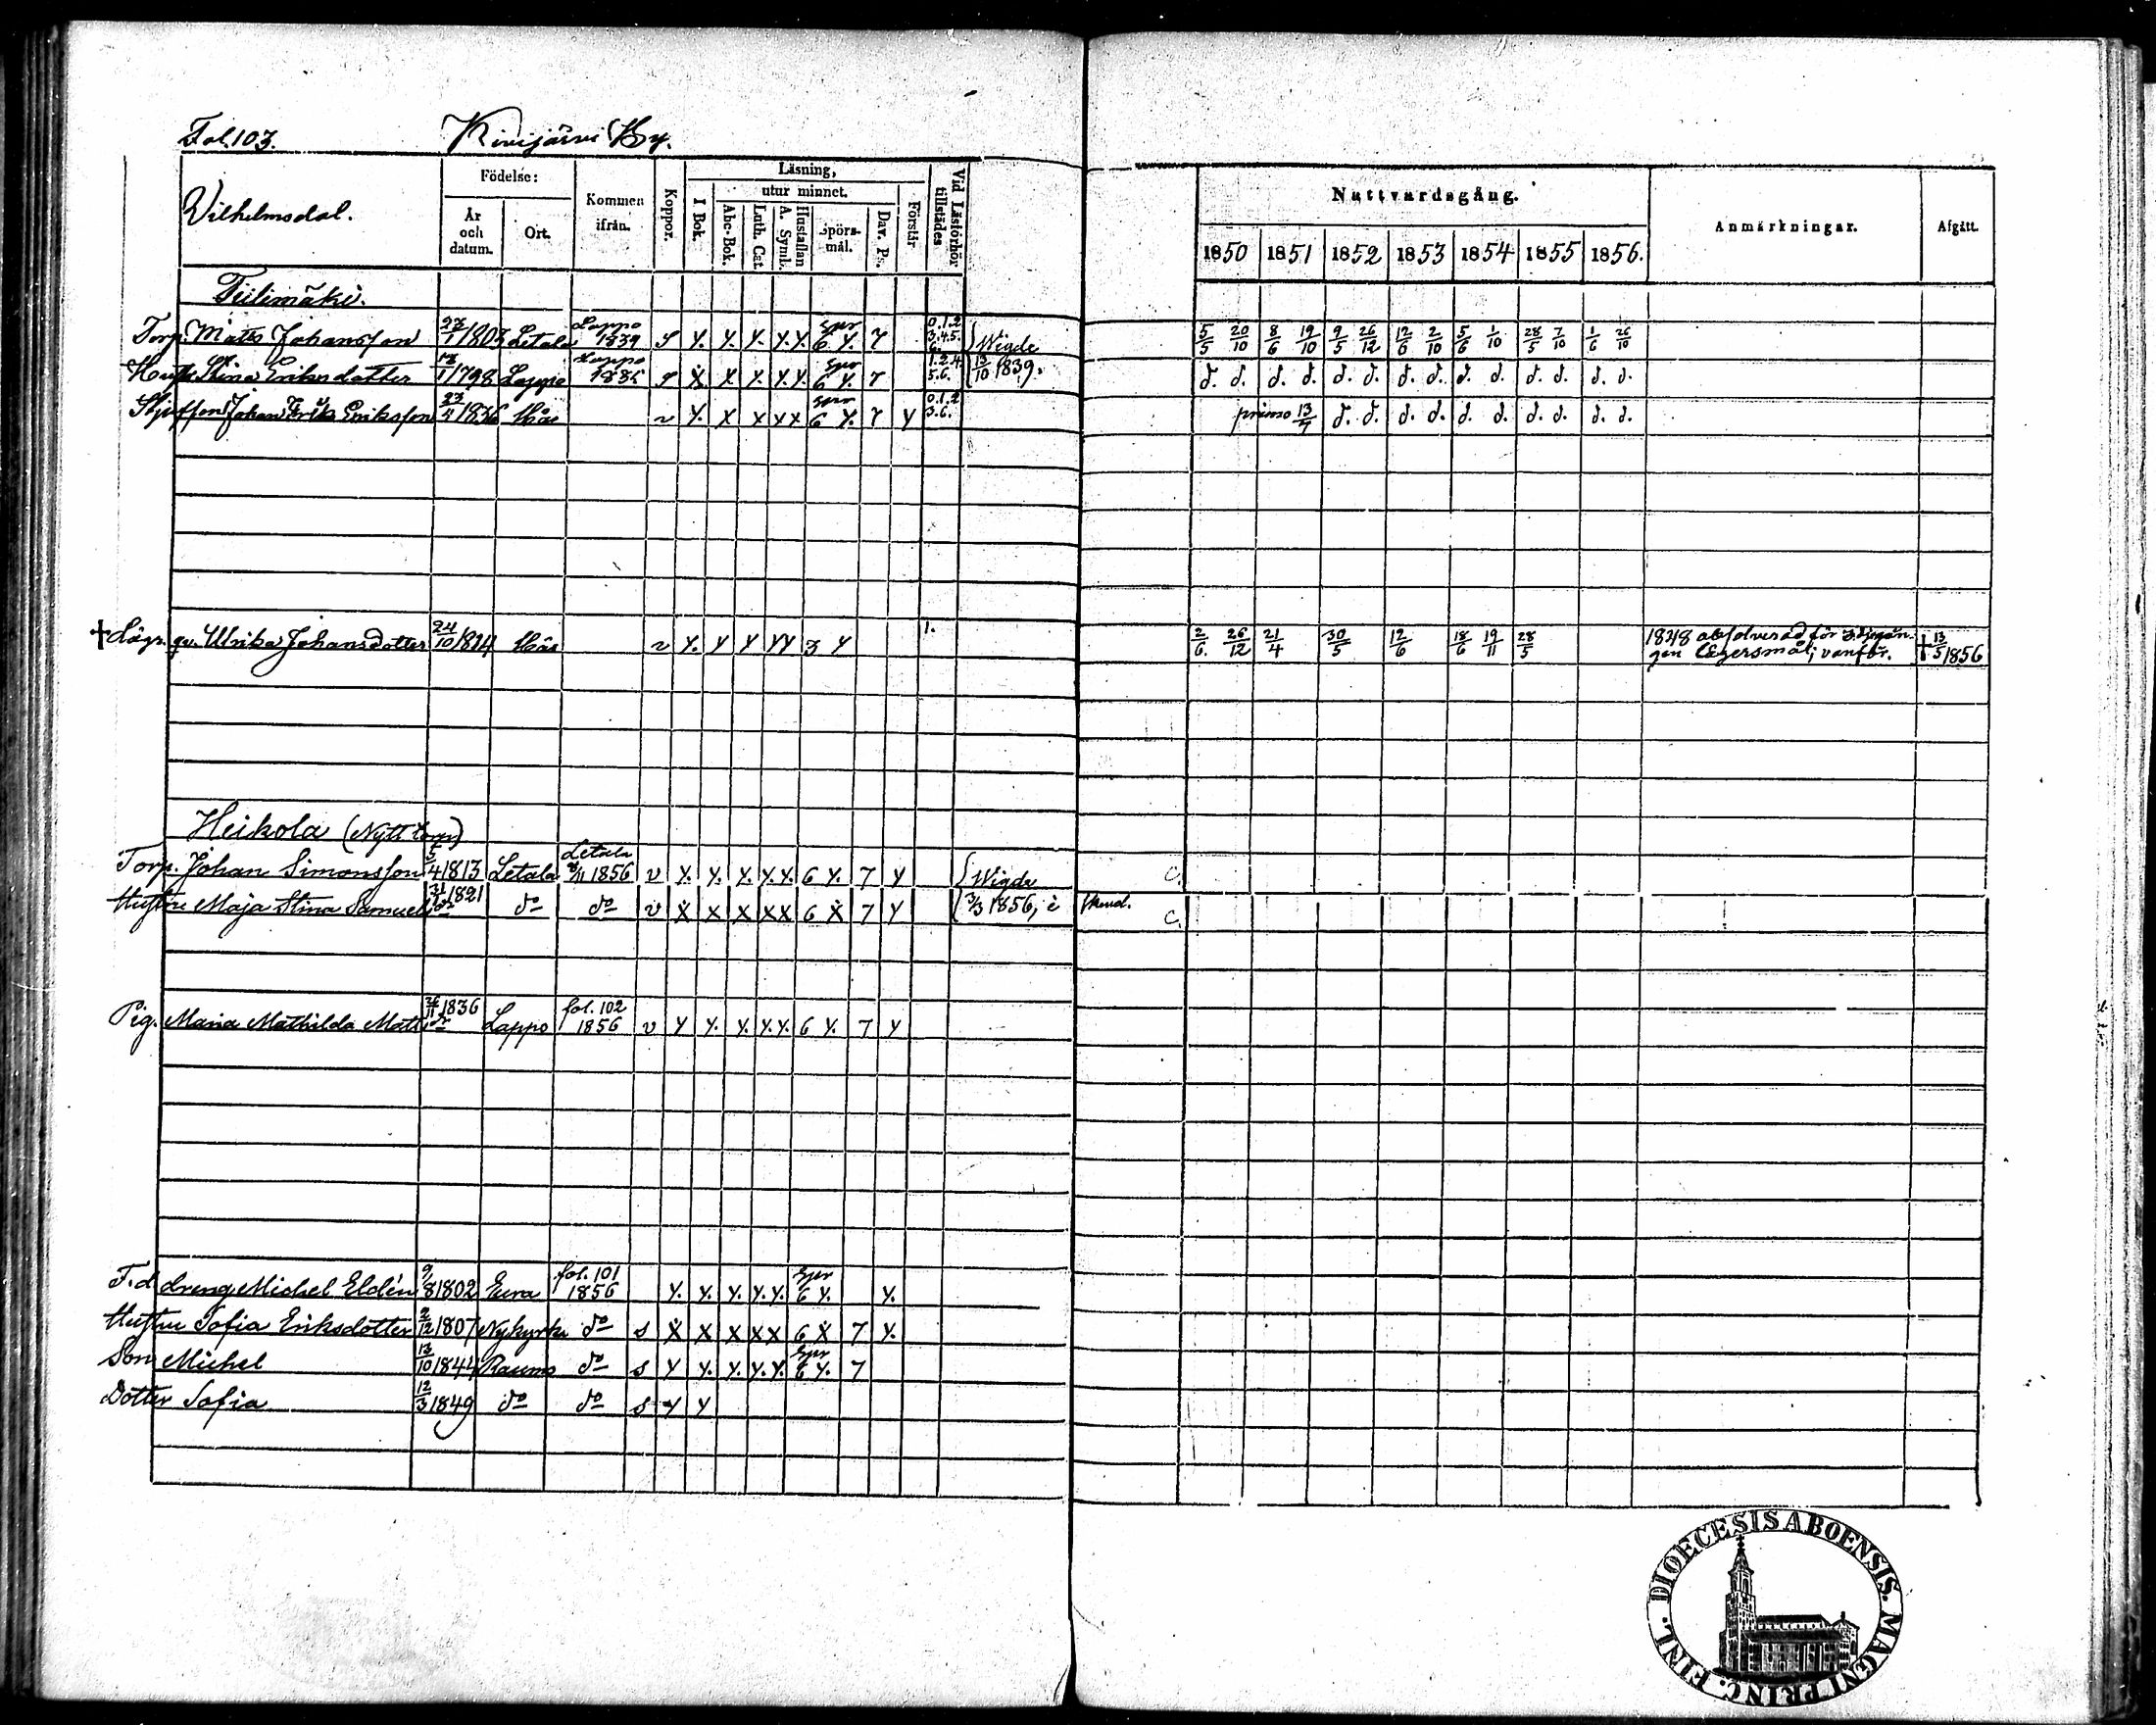 Fol. 103. Kivijärvi By.
Wilhelmsdal.
Födelse: År och datum. Ort.
Kommen ifrån.
Koppor.
Läsning,
I Bok.
utur minnet.
Abc-Bok.
Luth. Cat.
A. Symb. Hustaflan
Spörs-mål.
Dav. Ps.
Förstår
Vid Läsförhör tillstädes
Nattvardsgång.
1850 1851 1852 1853 1854 1855 1856.
Anmärkningar.
Afgått.
Tiilimäki.
Torp. Matts Johansson 27/1 1803 Letala Lappo 1839 s y. y. y. y. y. Spr 6 y. 7 0.1.2 3.4.5. 6. Wigde 5/5 20/10 8/6 19/10 9/5 26/12 12/6 2/10 5/6 1/10 28/5 7/10 1/6 26/10
Hustr. Stina Eriksdotter 1798 Lappo Lappo s x x y. y. y. Spr 6 y. 7 1.2.4. 5.6. 13/10 1839. d. d. d. d. d. d. d. d. d. d. d. d. d. d.
Johan Erik Eriksson 1836 Här v y. x x x x Spr 6 y. 7 y 0.1.2 3.6. primo 13/7 d. d. d. d. d. d. d. d. d. d.
† Lägr. qv. Ulrika Johansdotter 24/10 1814 Här v y. y y y y 3 y 1. 2/6. 26/12 21/4 30/5 12/6 18/6 19/11 28/5 1848 absolverad för 3dje gån-
gen Lägersmål; vanför. † 13/5 1856
Heikola (Nytt torp)
Torp. Johan Simonsson 5/4 1813 Letala Letala /11 1856 v y. y. y. y. y. 6 y. 7 y Wigde C.
Hustru Maja Stina Samuels dr 31/ 1821 do do v x x x x x 6 x 7 y 3/3 1856, i C.
Pig. Maria Mathilda Matts dr 1836 Lappo fol. 102 1856 v y y. y. y. y. 6 y. 7 y
F. d. dreng Michel Eldén 9/8 1802 Eura fol. 101 1856 y. y. y. y. y. Spr 6 y. y.
Hustru Sofia Eriksdotter 2/12 1807 Nykyrka do s x x x x x 6 x 7 y.
Son Michel 13/10 1844 Raumo do s y y. y. y. y. Spr 6 y. 7
Dotter Sofia 12/3 1849 do do s y y
DIOECESIS ABOENSIS. MAGNI PRINC. FINL.